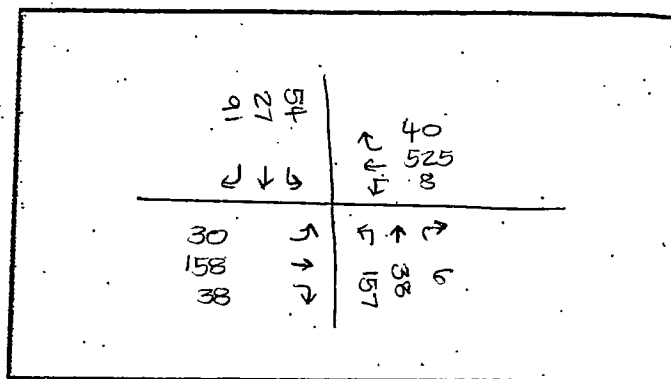 91 27 54
40
525
8
30
158
38
157 38 6